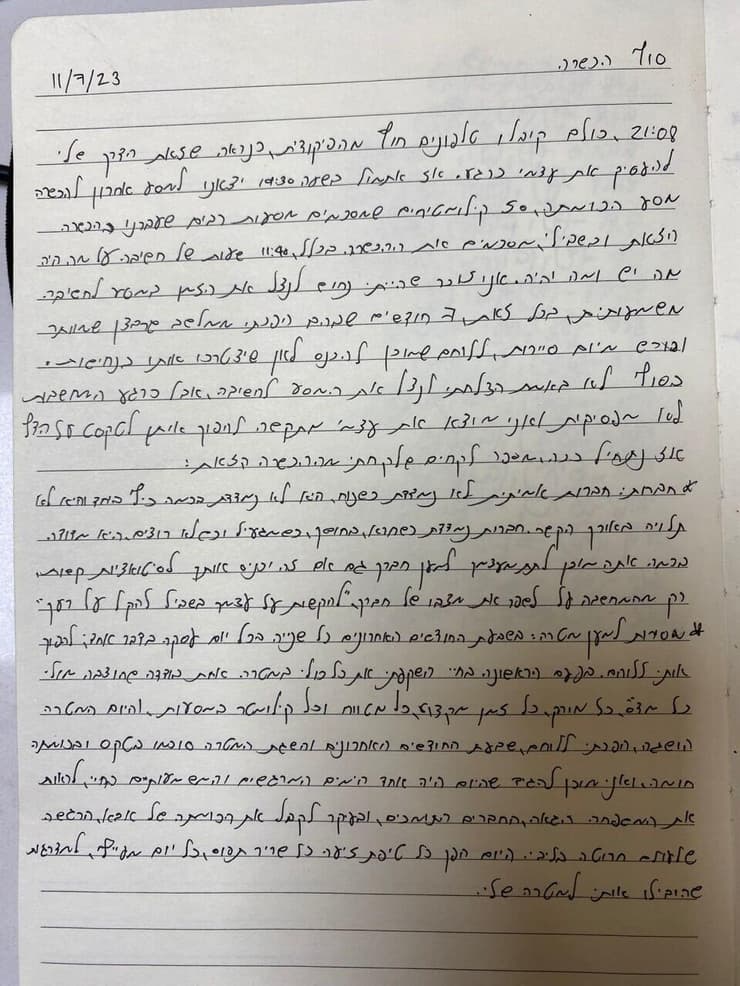 סוף הכשרה. 11/7/23
21:08, כולם קיבלו טלפונים חוץ מהפיקודית, כנראה שזאת הדרך שלי
להעסיק את עצמי כרגע. אז אתמול בשעה 19:30 יצאנו למסע אחרון להכשרה
מסע הכומתה, 50 קילומטרים שמסכמים מסעות רבים שעברנו בהכשרה
הזאת ובשבילי, מסכמים את ההכשרה בכלל, 11:40 שעות של חשיבה על מה היה
מה יש ומה יהיה. אני זוכר שהייתי נחוש לנצל את הזמן במסע לחשיבה
משמעותית, בכל זאת, 7 חודשים שבהם הפכתי ממלשב שרצון שמוותר
ופורש מיום סיירות, ללוחם שמוכן להיכנס לאן שיצטרכו אותו בנחישות.
בסוף לא באמת הצלחתי לנצל את המסע לחשיבה, אבל כרגע המחשבות
לא מפסיקות ואני מוצא את עצמי מתקשה להפוך אותן לטקסט על הדף
אז נתחיל ככה, מספר לקחים שלקחתי מההכשרה הזאת:
* חברות: חברות אמיתית לא נמדדת כשנוח, היא לא נמדדת בכמה כיף ביחד והיא לא
תלויה באורך הקשר. חברות נמדדת כשחרא, בחושך, כשמגעיל וכשלא רוצים. היא מדודה
בכמה אתה מוכן לתת מעצמך למען חברך גם אם זה יכניס אותך לסיטואציות קשות,
רק מהמחשבה על לשפר את מצבו של חברך. "להקשות על עצמך בשביל להקל על רעך"
* מסירות למען מטרה: בשבעת החודשים האחרונים כל שנייה בכל יום עסקה בדבר אחד: להפוך
אותי ללוחם. בפעם הראשונה בחיי השקעתי את כל כולי במטרה אחת בודדה שהוצבה מולי
כל מדס, כל בוחן, כל זמן מקצוע, כל מטווח וכל קילומטר במסעות, והיום המטרה
הושגה, הפכתי ללוחם, שבעת החודשים האחרונים והשגת המטרה סוכמו בטקס ובכומתה
חומה, ואני מוכן להגיד שהיום היה אחד הימים המרגשים והמשמעותיים בחיי, לראות
את המשפחה הגאה, החברים התומכים, ובעיקר לקבל את הכומתה של אבא, הרגשה
שלעולם חרוטה בליבי. היום הפך כל טיפת זיעה כל שריר תפוס, כל יום מעייף, למדרגות
שהובילו אותי למטרה שלי.